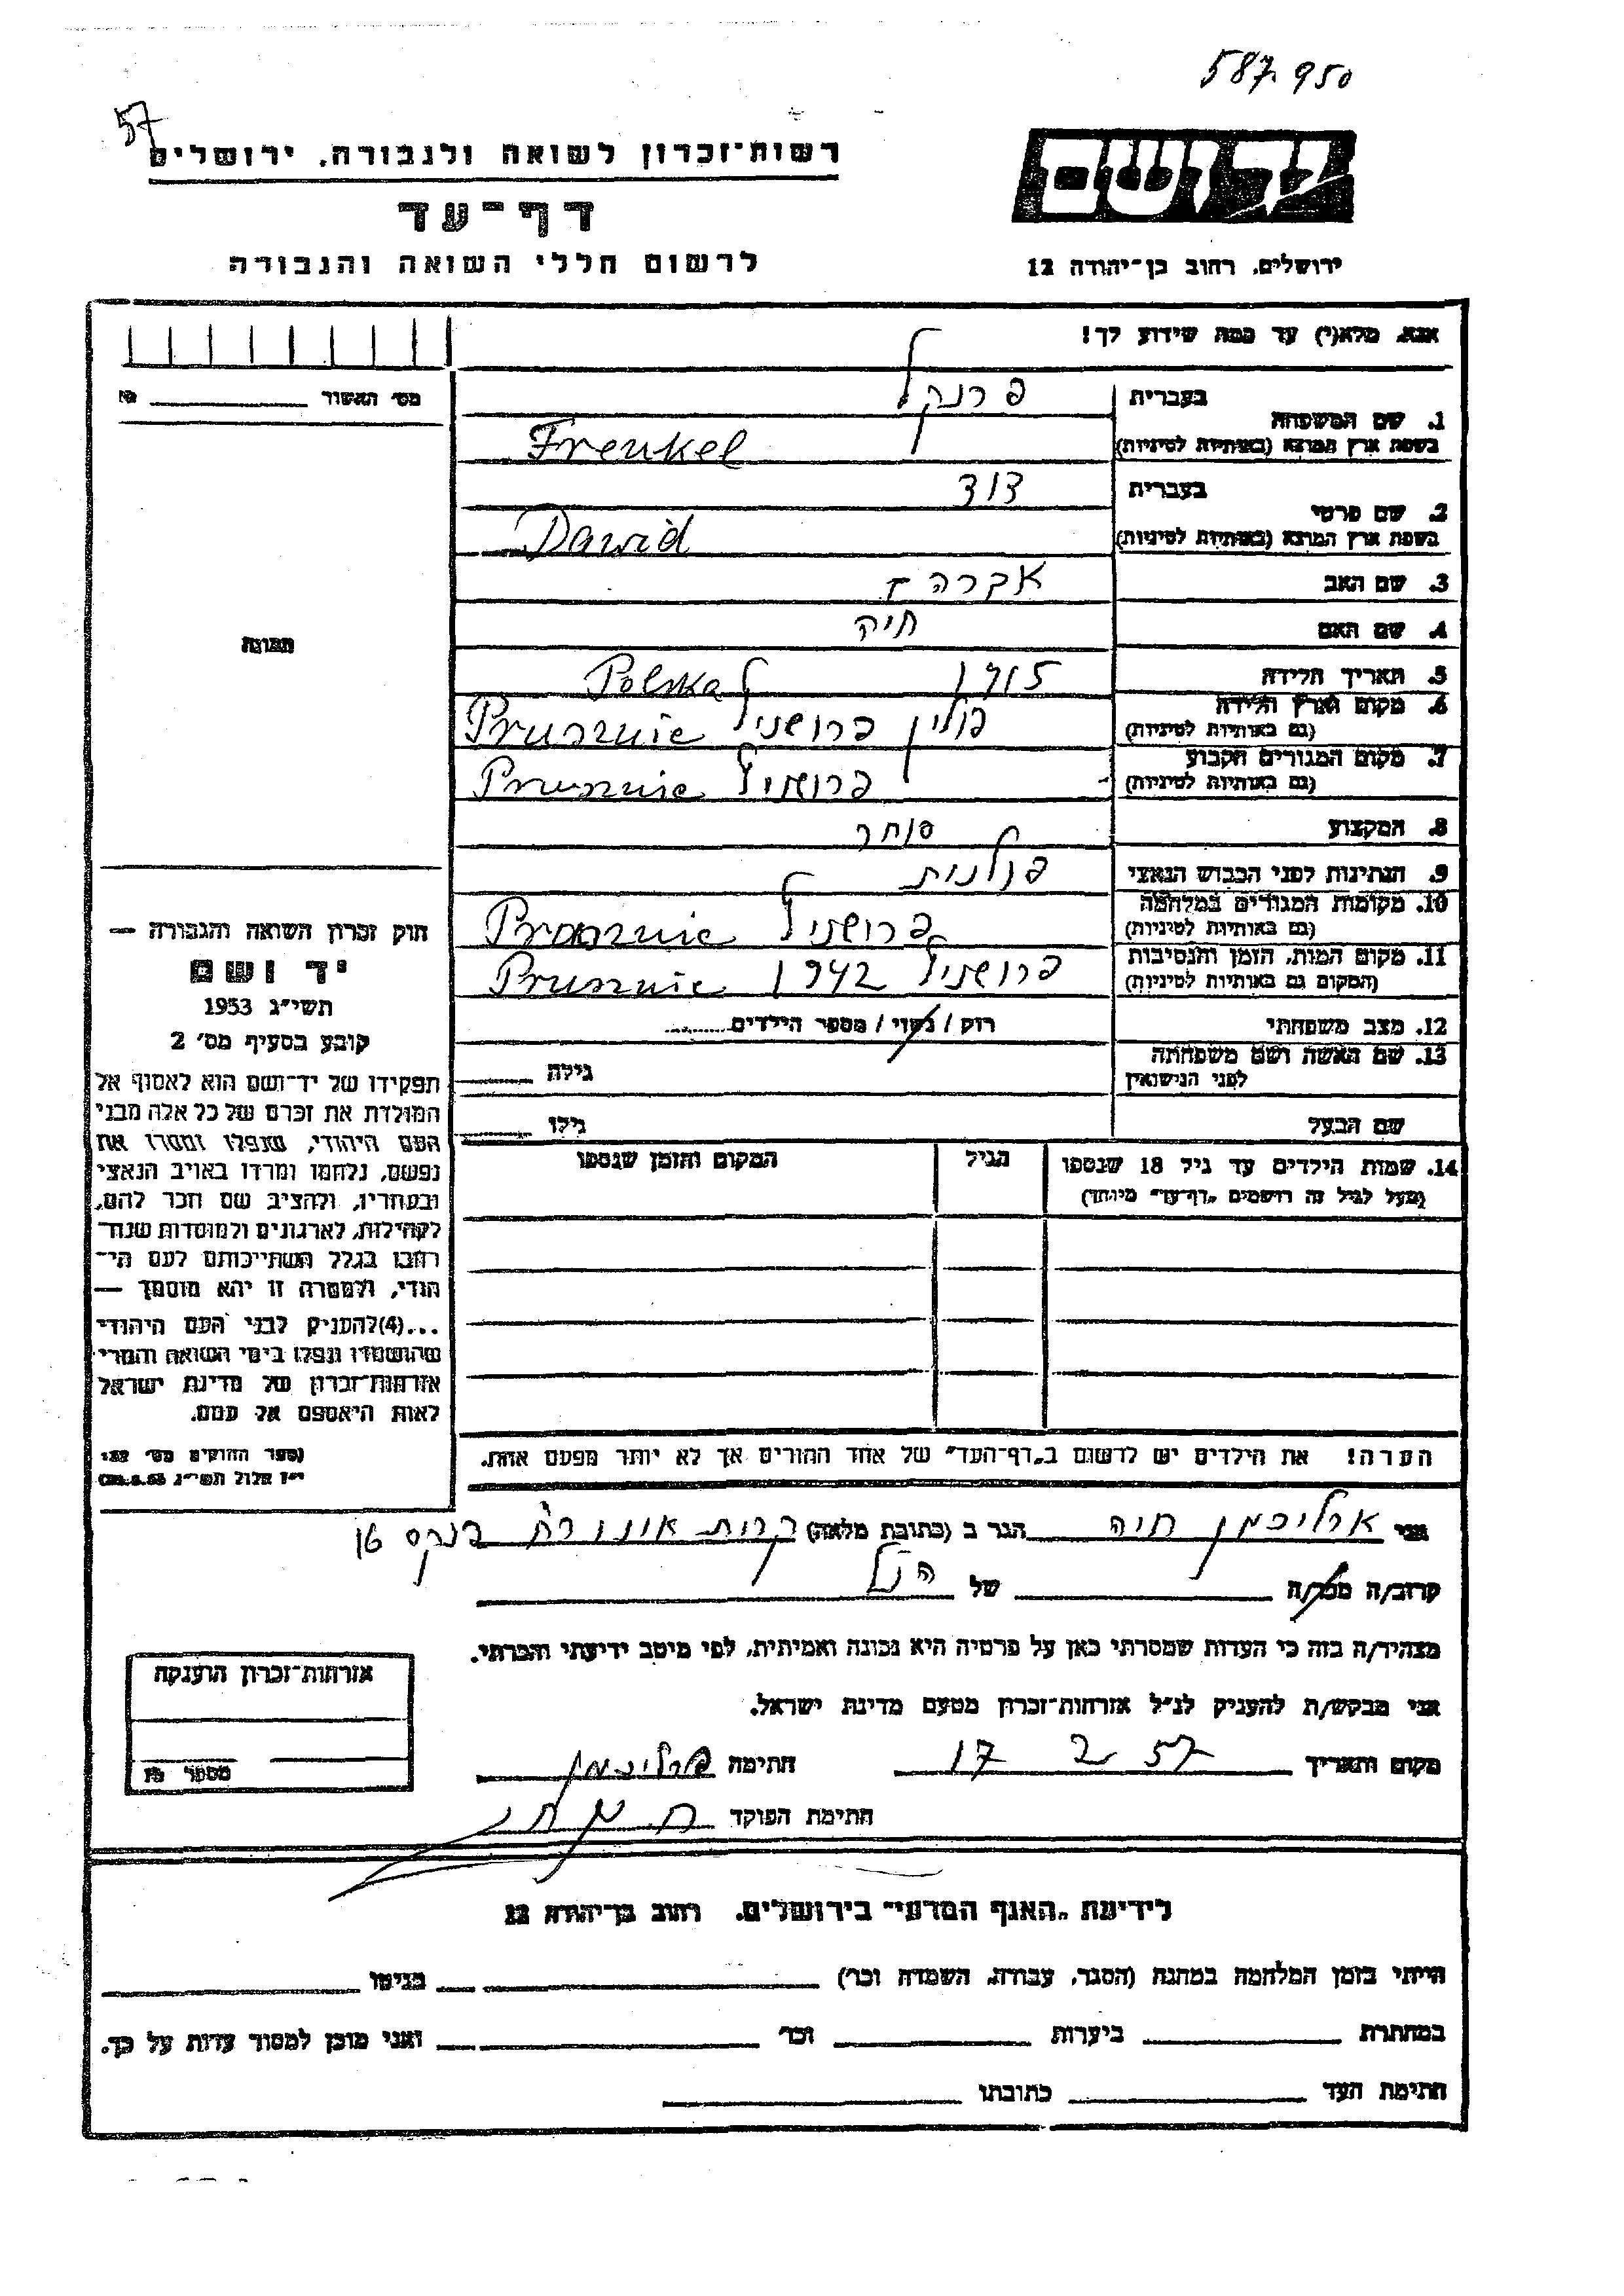 587.950
57
רשות־זכרון לשואה ולגבורה, ירושלים
יד ושם
דף־עד
לרשום חללי השואה והגבורה
ירושלים, רחוב בן־יהודה 12
אנא, מלא(י) עד כמה שידוע לך!
מס׳ האשור
1. שם המשפחה
בעברית פרנקל
בשפת ארץ המוצא (באותיות לטיניות) Frenkel
2. שם פרטי
בעברית דוד
בשפת ארץ המוצא (באותיות לטיניות) Dawid
3. שם האב אברהם
4. שם האם חיה
5. תאריך הלידה 1915
6. מקום וארץ הלידה פולין Polska
(גם באותיות לטיניות) Prusznic
7. מקום המגורים הקבוע
(גם באותיות לטיניות) Prusznic
8. המקצוע סוחר
9. הנתינות לפני הכבוש הנאצי פולנית
10. מקומות המגורים במלחמה
(גם באותיות לטיניות)
11. מקום המות, הזמן והנסיבות 1942
(המקום גם באותיות לטיניות) Prusznic
12. מצב משפחתי רווק / נשוי / מספר הילדים
13. שם האשה ושם משפחתה גילה
לפני הנישואין
שם הבעל גילו
14. שמות הילדים עד גיל 18 שנספו הגיל המקום והזמן שנספו
(מעל לגיל זה רושמים „דף־עד״ מיוחד)
הערה! את הילדים יש לרשום ב„דף־העד״ של אחד ההורים אך לא יותר מפעם אחת.
תמונה
חוק זכרון השואה והגבורה —
יד ושם
תשי״ג 1953
קובע בסעיף מס׳ 2
תפקידו של יד־ושם הוא לאסוף אל
המולדת את זכרם של כל אלה מבני
העם היהודי, שנפלו ומסרו את
נפשם, נלחמו ומרדו באויב הנאצי
ובעוזריו, ולהציב שם וזכר להם,
לקהילות, לארגונים ולמוסדות שנח־
רבו בגלל השתייכותם לעם הי־
הודי, ולמטרה זו יהא מוסמך —
...(4)להעניק לבני העם היהודי
שהושמדו ונפלו בימי השואה והמרי
אזרחות־זכרון של מדינת ישראל
לאות היאספם אל עמם.
(ספר החוקים מס׳ 132
י״ז אלול תשי״ג 28.8.53)
אני חיה הגר ב (כתובת מלאה) קרית אונו 16
קרוב/ה מכר/ה של הנ״ל
מצהיר/ה בזה כי העדות שמסרתי כאן על פרטיה היא נכונה ואמיתית, לפי מיטב ידיעתי והכרתי.
אני מבקש/ת להעניק לנ״ל אזרחות־זכרון מטעם מדינת ישראל.
מקום ותאריך 17 2 57 חתימה
חתימת הפוקד
אזרחות־זכרון הוענקה
מספר
לידיעת „האגף המדעי״ בירושלים, רחוב בן־יהודה 12
הייתי בזמן המלחמה במחנה (הסגר, עבודה, השמדה וכו׳) בגיטו
במחתרת ביערות וכו׳ ואני מוכן למסור עדות על כך.
חתימת העד כתובתו